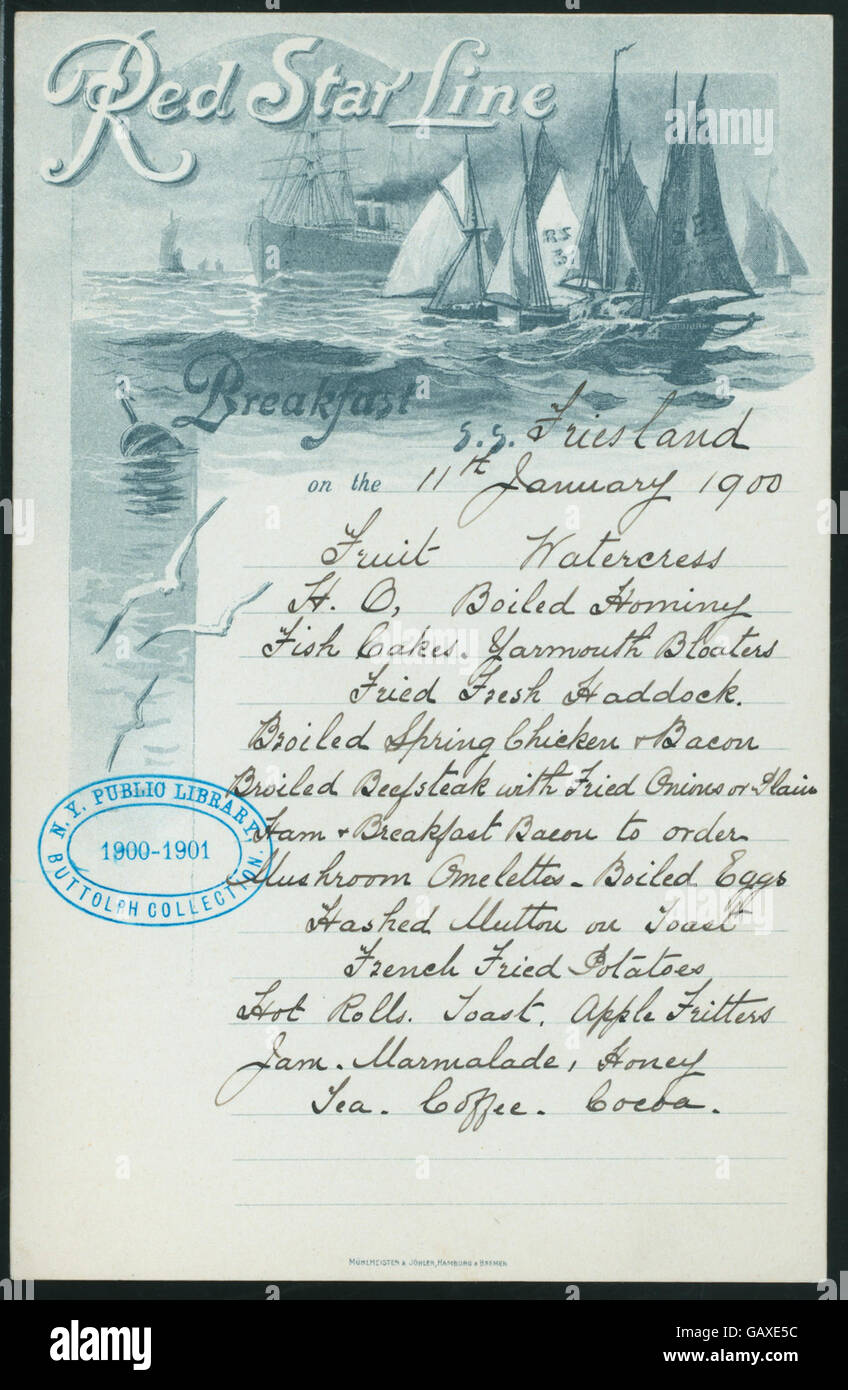 Red Star Line
RS
Breakfast
s.s. Friesland
on the 11th January 1900
Fruit Watercress
H. O, Boiled Hominy
Fish Cakes. Yarmouth Bloaters
Fried Fresh Haddock.
Broiled Spring Chicken & Bacon
Broiled Beefsteak with Fried Onions or Plain
Ham & Breakfast Bacon to order
Mushroom Omelettes - Boiled Eggs
Hashed Mutton on Toast
French Fried Potatoes
Hot Rolls. Toast. Apple Fritters
Jam. Marmalade, Honey
Tea. Coffee. Cocoa.
N.Y. PUBLIC LIBRARY,
1900-1901
BUTTOLPH COLLECTION.
MÜHLMEISTER & JOHLER, HAMBURG & BREMEN
alamy
Image ID: GAXE5C
www.alamy.com